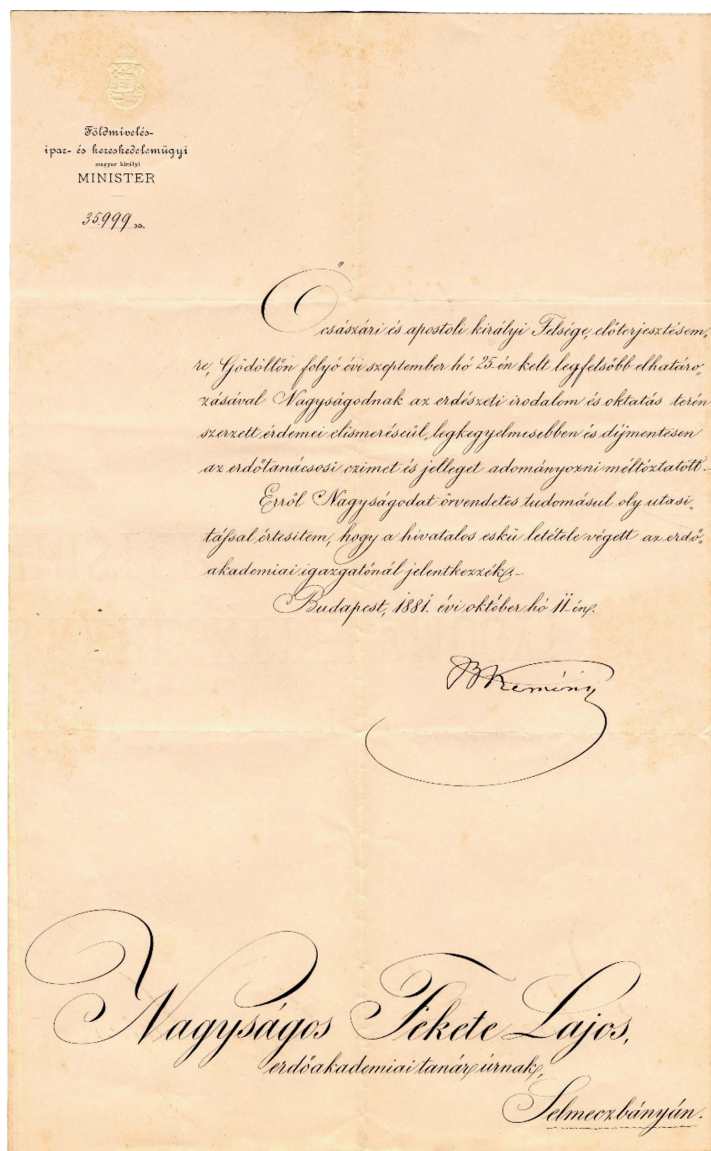 Földmívelés-
ipar- és kereskedelemügyi
magyar királyi
MINISTER
35.999 sz.
Ő császári és apostoli királyi Felsége, előterjesztésem-
re, Gödöllőn folyó évi szeptember hó 25-én kelt legfelsőbb elhatáro-
zásával Nagyságodnak az erdészeti irodalom és oktatás terén
szerzett érdemei elismeréseűl, legkegyelmesebben és díjmentesen
az erdőtanácsosi czimet és jelleget adományozni méltóztatott.-
Erről Nagyságodat örvendetes tudomásul oly utasi-
tással értesitem, hogy a hivatalos eskü letétele végett az erdő-
akademiai igazgatónál jelentkezzék.-
Budapest, 1881. évi október hó 11-én.
BKemény
Nagyságos Fekete Lajos,
erdőakademiai tanár úrnak,
Selmeczbányán.